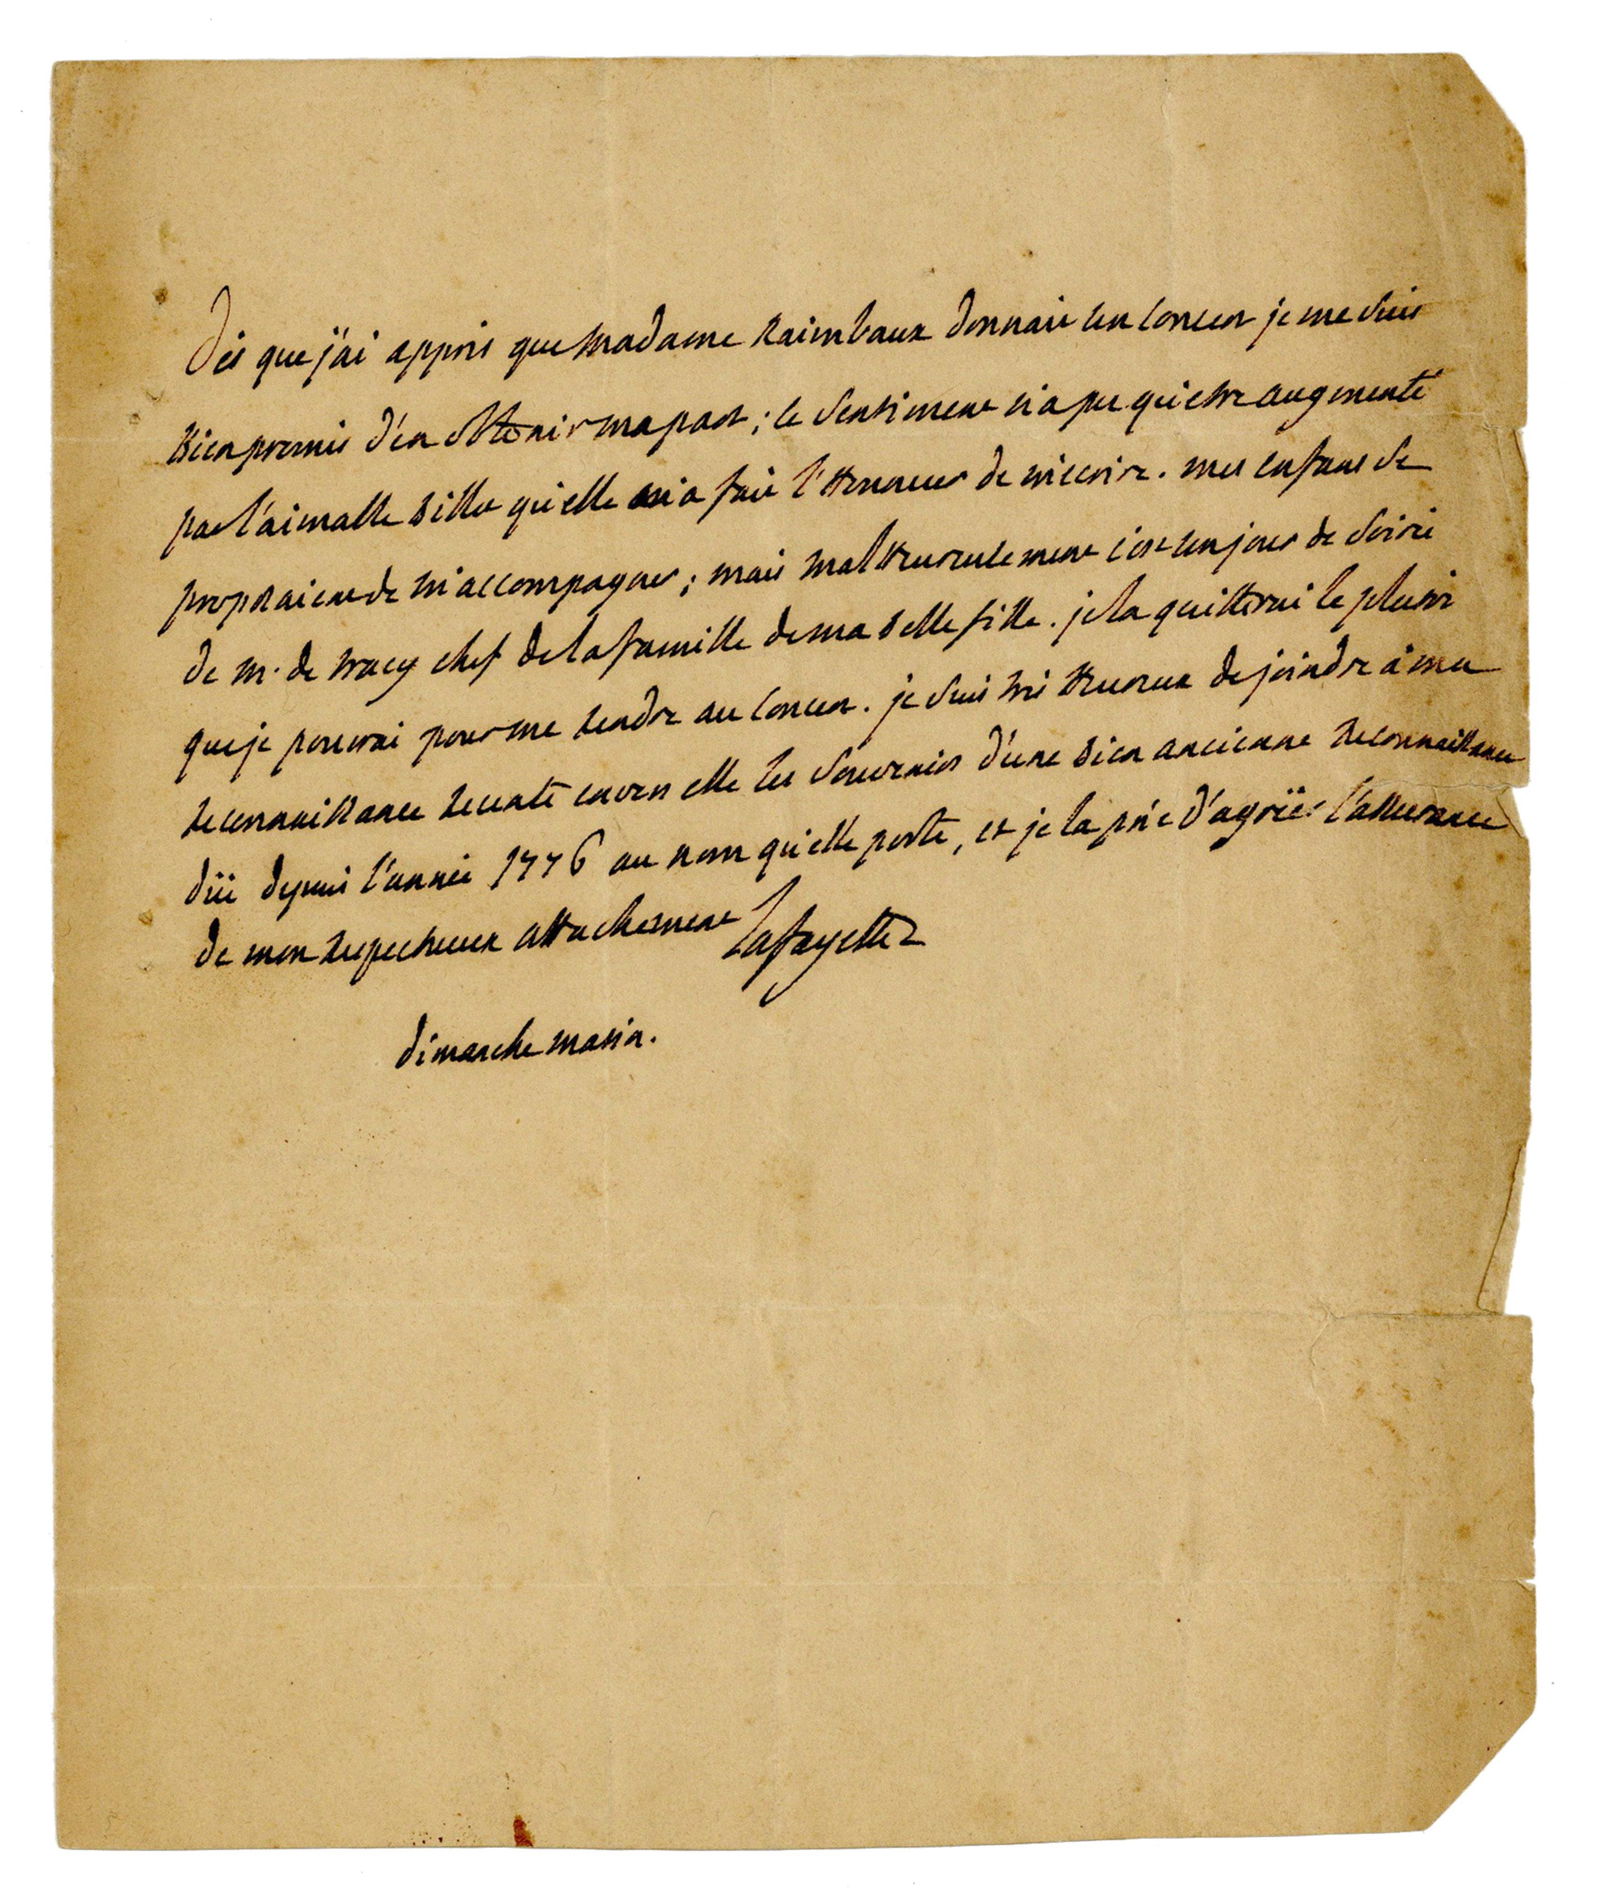 Dès que j'ai appris que Madame Raimbaux donnait un concert je me suis
bien promis d'en obtenir ma part; ce sentiment n'a pu qu'etre augmenté
par l'aimable billet qu'elle m'a fait l'honneur de m'ecrire. mes enfans se
proposaient de m'accompagner; mais malheureusement c'est un jour de soirée
de m. de tracy chef de la famille de ma belle fille. je la quitterai le plutot
que je pourrai pour me rendre au concert. je suis très heureux de joindre à ma
reconnaissance recente envers elle les souvenirs d'une bien ancienne reconnaissance
düe depuis l'année 1776 au nom qu'elle porte, et je la prie d'agréer l'assurance
de mon respectueux attachement Lafayette
dimanche matin.